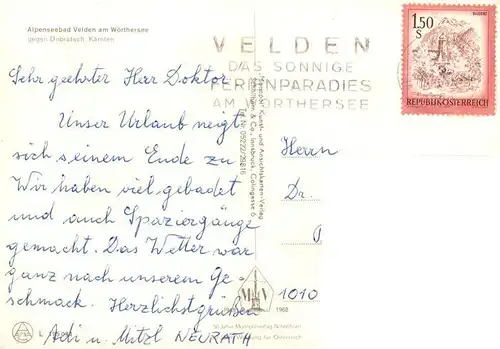 Alpenseebad Velden am Wörthersee
gegen Dobratsch, Kärnten
VELDEN
DAS SONNIGE
FERIENPARADIES
AM WÖRTHERSEE
1.50
S
REPUBLIK ÖSTERREICH
Sehr geehrter Herr Doktor
Unser Urlaub neigt
sich seinem Ende zu
Wir haben viel gebadet
und auch Spaziergänge
gemacht. Das Wetter war
ganz nach unserem Ge-
schmack. Herzlichstgrüßen
Adi u. Mitzl NEURATH
Kunst- und Ansichtskarten-Verlag
& Co., Innsbruck, Colingasse 6
Tel. Nr. 05222/29816
Herrn
Dr.
1010
1968